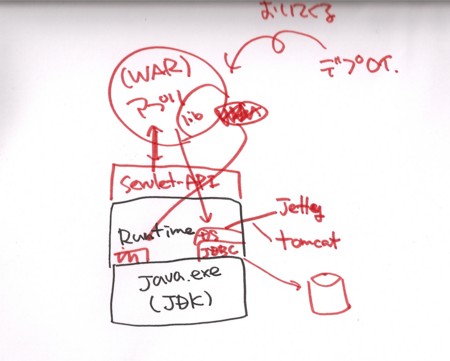 おいてくる
デプロイ.
(WAR)
アプリ
lib
Servlet-API
Runtime
DS
Jetty
tomcat
JDBC
java.exe
(JDK)